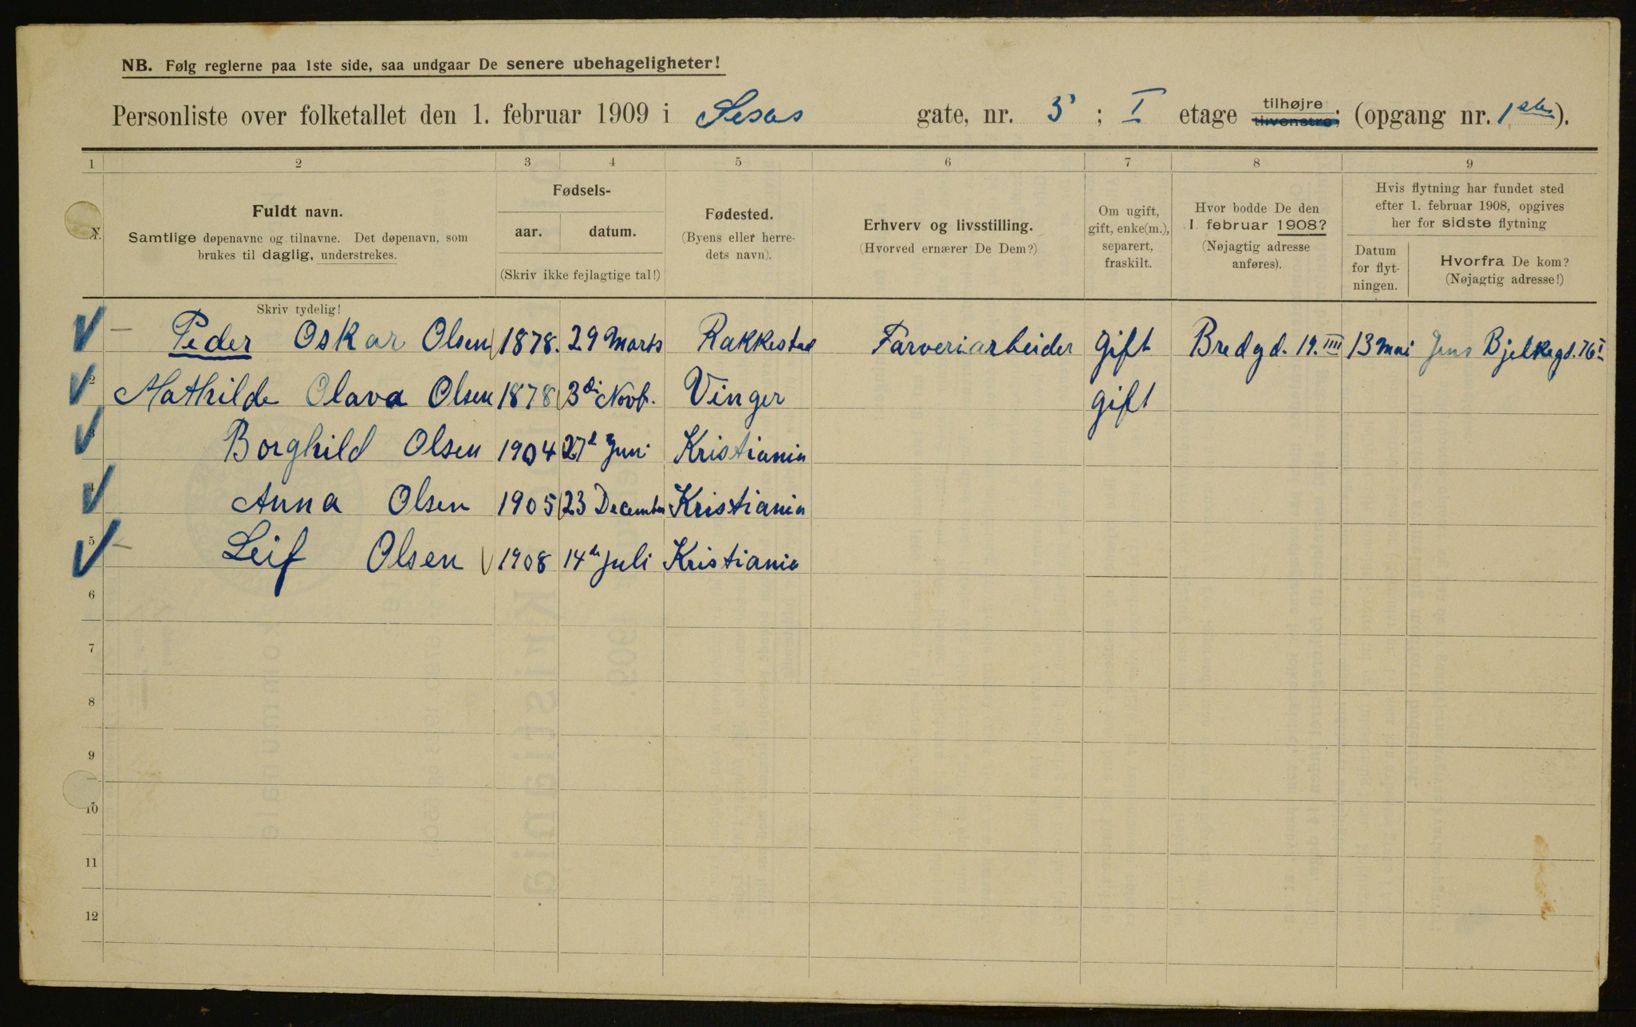 NB. Følg reglerne paa 1ste side, saa undgaar De senere ubehageligheter!
Personliste over folketallet den 1. februar 1909 i Sesos gate, nr. 5; I etage tilhøjre (opgang nr. 1).
tilvenstre;
1 2 3 4 5 6 7 8 9
Nr.
Fuldt navn.
Samtlige døpenavne og tilnavne. Det døpenavn, som
brukes til daglig, understrekes.
Fødsels-
aar. datum.
(Skriv ikke fejlagtige tal!)
Fødested.
(Byens eller herre-
dets navn).
Erhverv og livsstilling.
(Hvorved ernærer De Dem?)
Om ugift,
gift, enke(m.),
separert,
fraskilt.
Hvor bodde De den
1. februar 1908?
(Nøjagtig adresse
anføres).
Hvis flytning har fundet sted
efter 1. februar 1908, opgives
her for sidste flytning
Datum
for flyt-
ningen.
Hvorfra De kom?
(Nøjagtig adresse!)
Skriv tydelig!
Peder Oskar Olsen 1878. 29 Marts Rakkestad Farveriarbeider gift Bredgd. 19. IIII 13 mai Jens Bjelkegd. 76 I
2 Mathilde Olava Olsen 1878 3di Novb. Vinger gift
Borghild Olsen 1904 27d Juni Kristiania
Anna Olsen 1905 23 December Kristiania
5 Leif Olsen 1908 14de Juli Kristiania
6
7
8
9
10
11
12